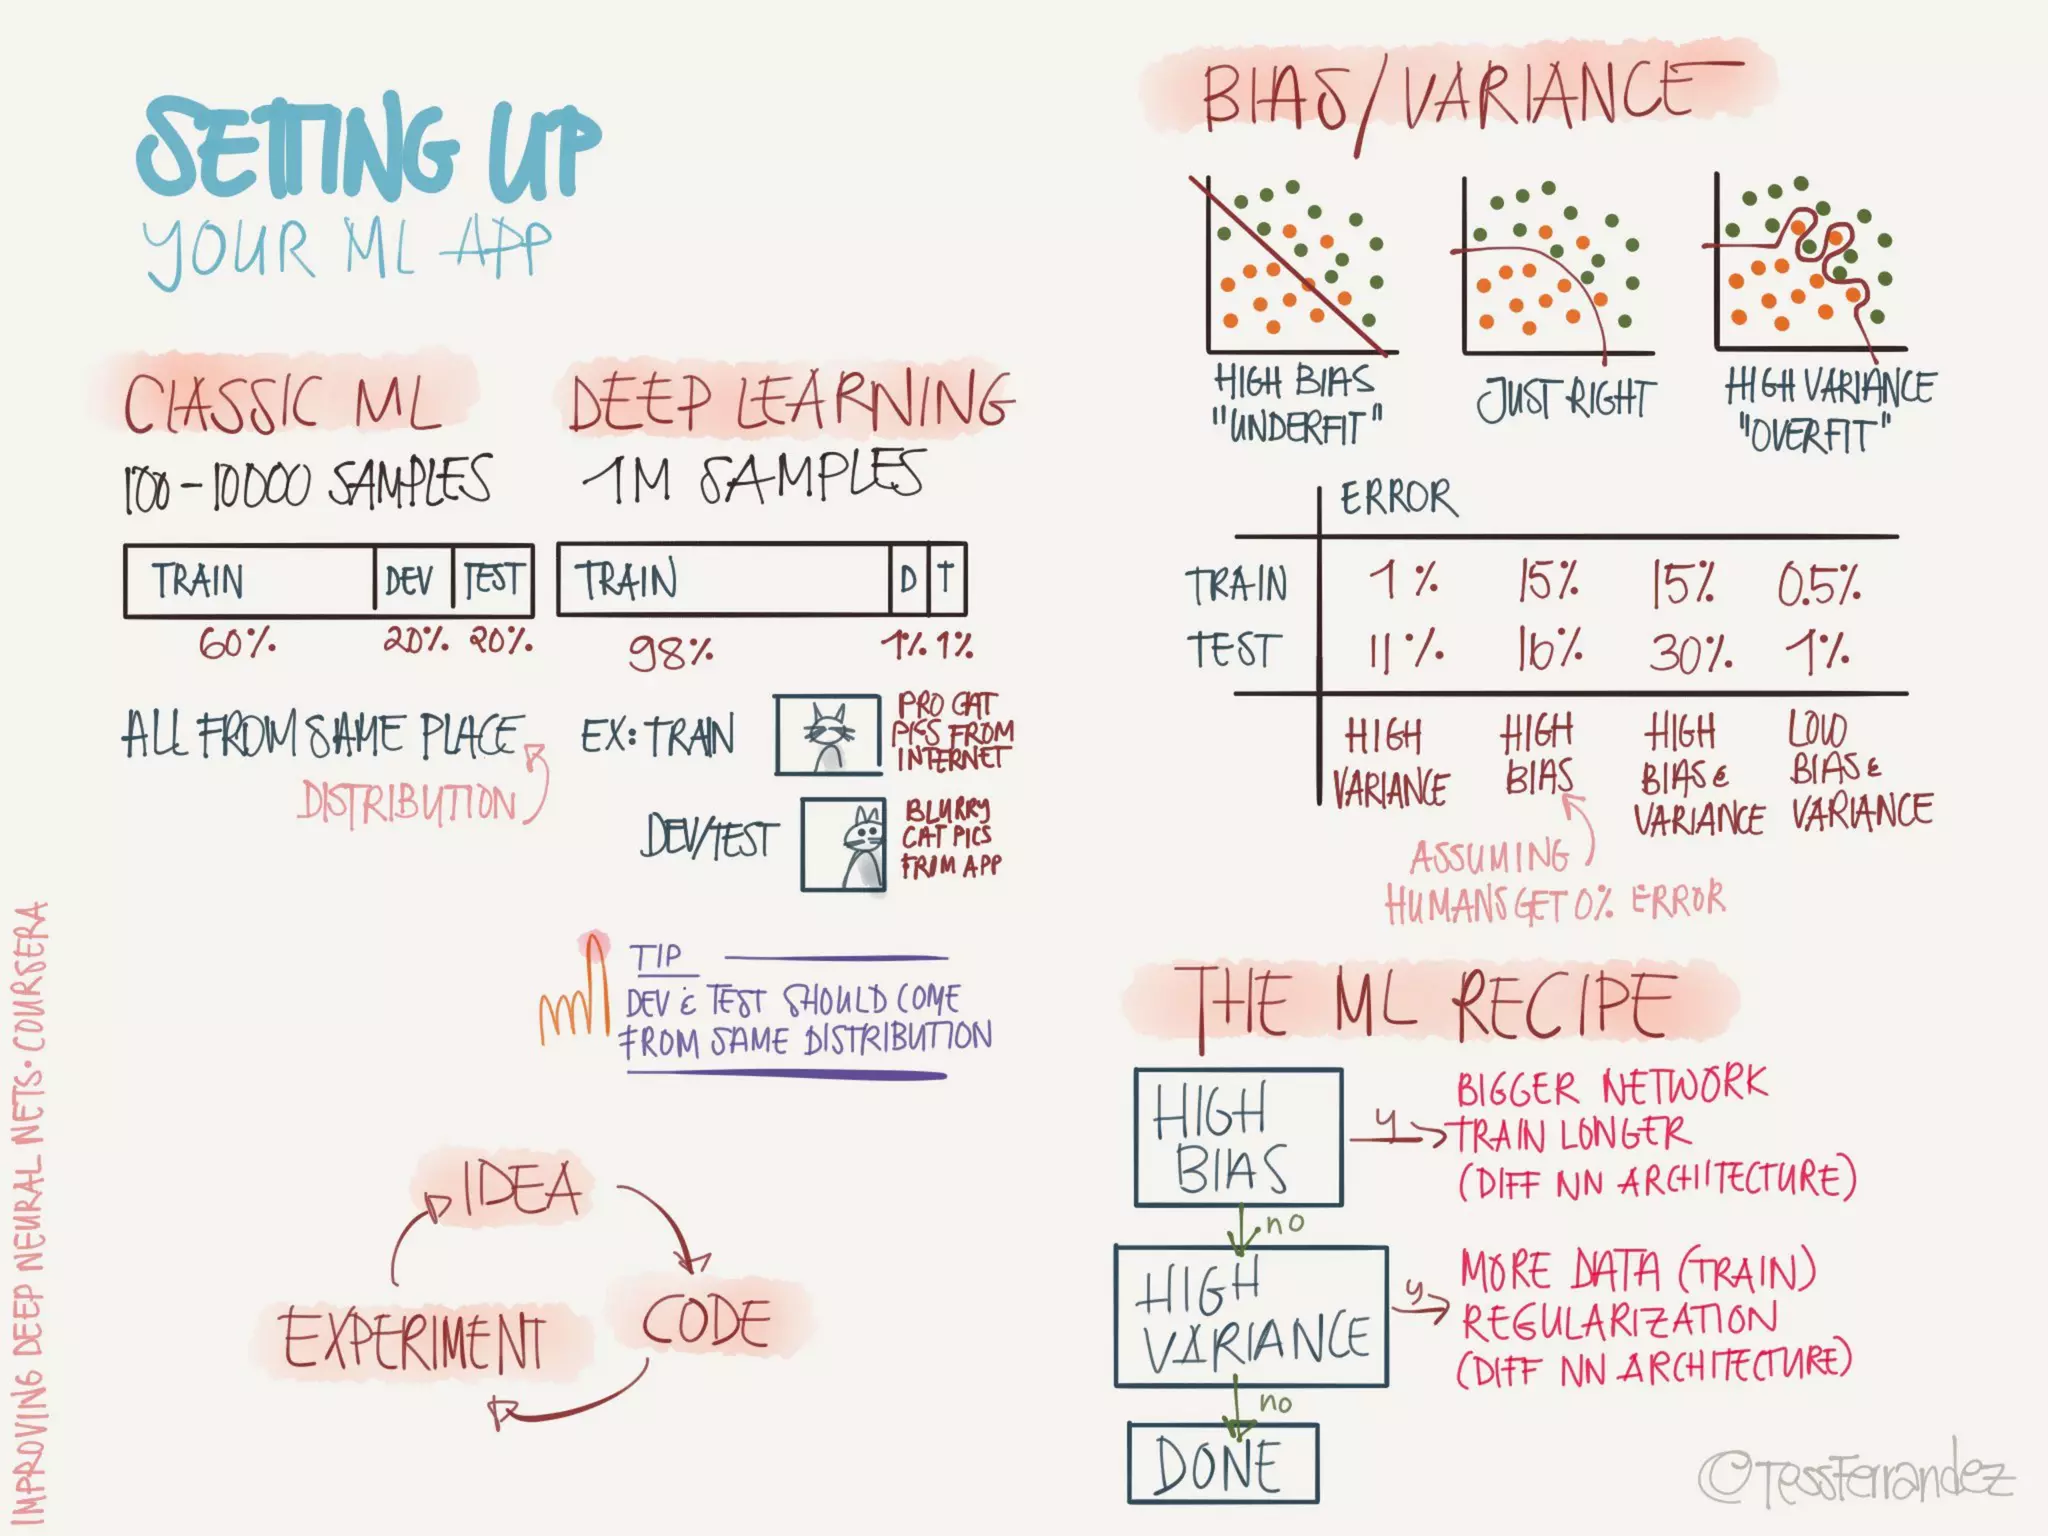 SETTING UP
YOUR ML APP
CLASSIC ML
100-10000 SAMPLES
TRAIN DEV TEST
60% 20% 20%
ALL FROM SAME PLACE
DISTRIBUTION
DEEP LEARNING
1M SAMPLES
TRAIN D T
98% 1% 1%
EX: TRAIN
PRO CAT
PICS FROM
INTERNET
DEV/TEST
BLURRY
CAT PICS
FROM APP
TIP
DEV & TEST SHOULD COME
FROM SAME DISTRIBUTION
IDEA
CODE
EXPERIMENT
BIAS/VARIANCE
HIGH BIAS
"UNDERFIT"
JUST RIGHT
HIGH VARIANCE
"OVERFIT"
ERROR
TRAIN 1% 15% 15% 0.5%
TEST 11% 16% 30% 1%
HIGH
VARIANCE
HIGH
BIAS
HIGH
BIAS &
VARIANCE
LOW
BIAS &
VARIANCE
ASSUMING
HUMANS GET 0% ERROR
THE ML RECIPE
HIGH
BIAS
Y
BIGGER NETWORK
TRAIN LONGER
(DIFF NN ARCHITECTURE)
no
HIGH
VARIANCE
Y
MORE DATA (TRAIN)
REGULARIZATION
(DIFF NN ARCHITECTURE)
no
DONE
IMPROVING DEEP NEURAL NETS • COURSERA
©TessFerrandez